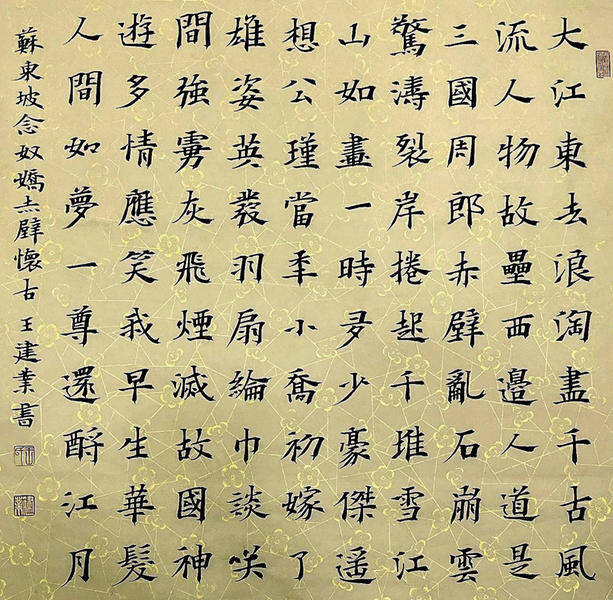 大江東去浪淘盡千古風
流人物故壘西邊人道是
三國周郎赤壁亂石崩雲
驚濤裂岸捲起千堆雪江
山如畫一時多少豪傑遥
想公瑾當秊小喬初嫁了
雄姿英發羽扇綸巾談咲
間強虜灰飛煙滅故國神
遊多情應笑我早生華髮
人間如夢一尊還酹江月
蘇東坡念奴嬌赤壁懷古王建業書